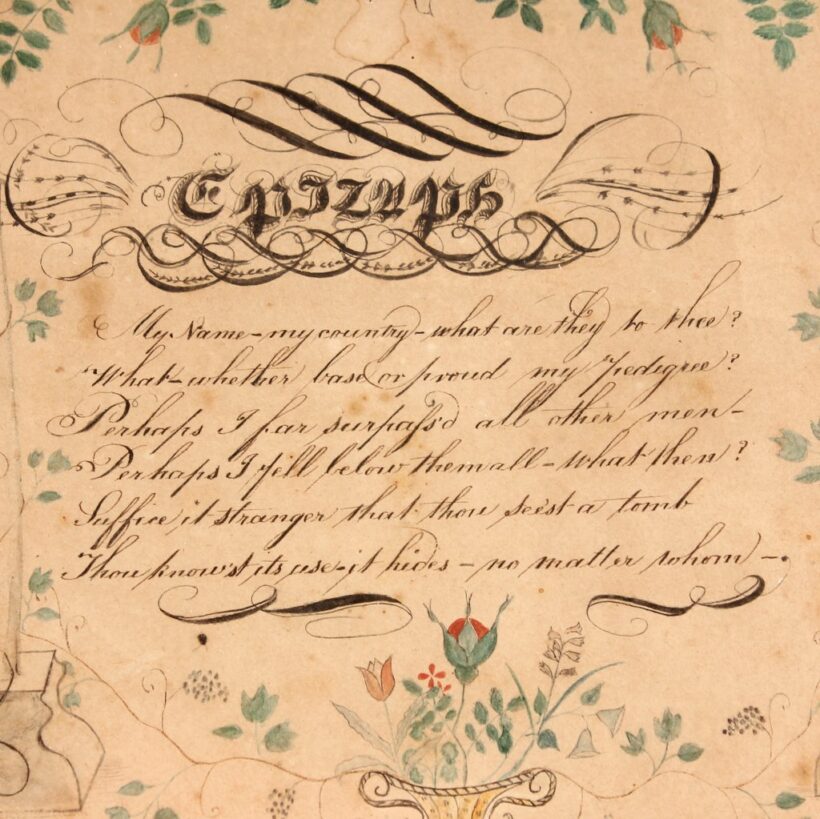 Epitaph
My Name - my country - what are they to thee?
What - whether base or proud my Pedigree?
Perhaps I far surpass'd all other men -
Perhaps I fell below them all - what then?
Suffice it stranger that thou seest a tomb
Thou know'st its use - it hides - no matter whom -.